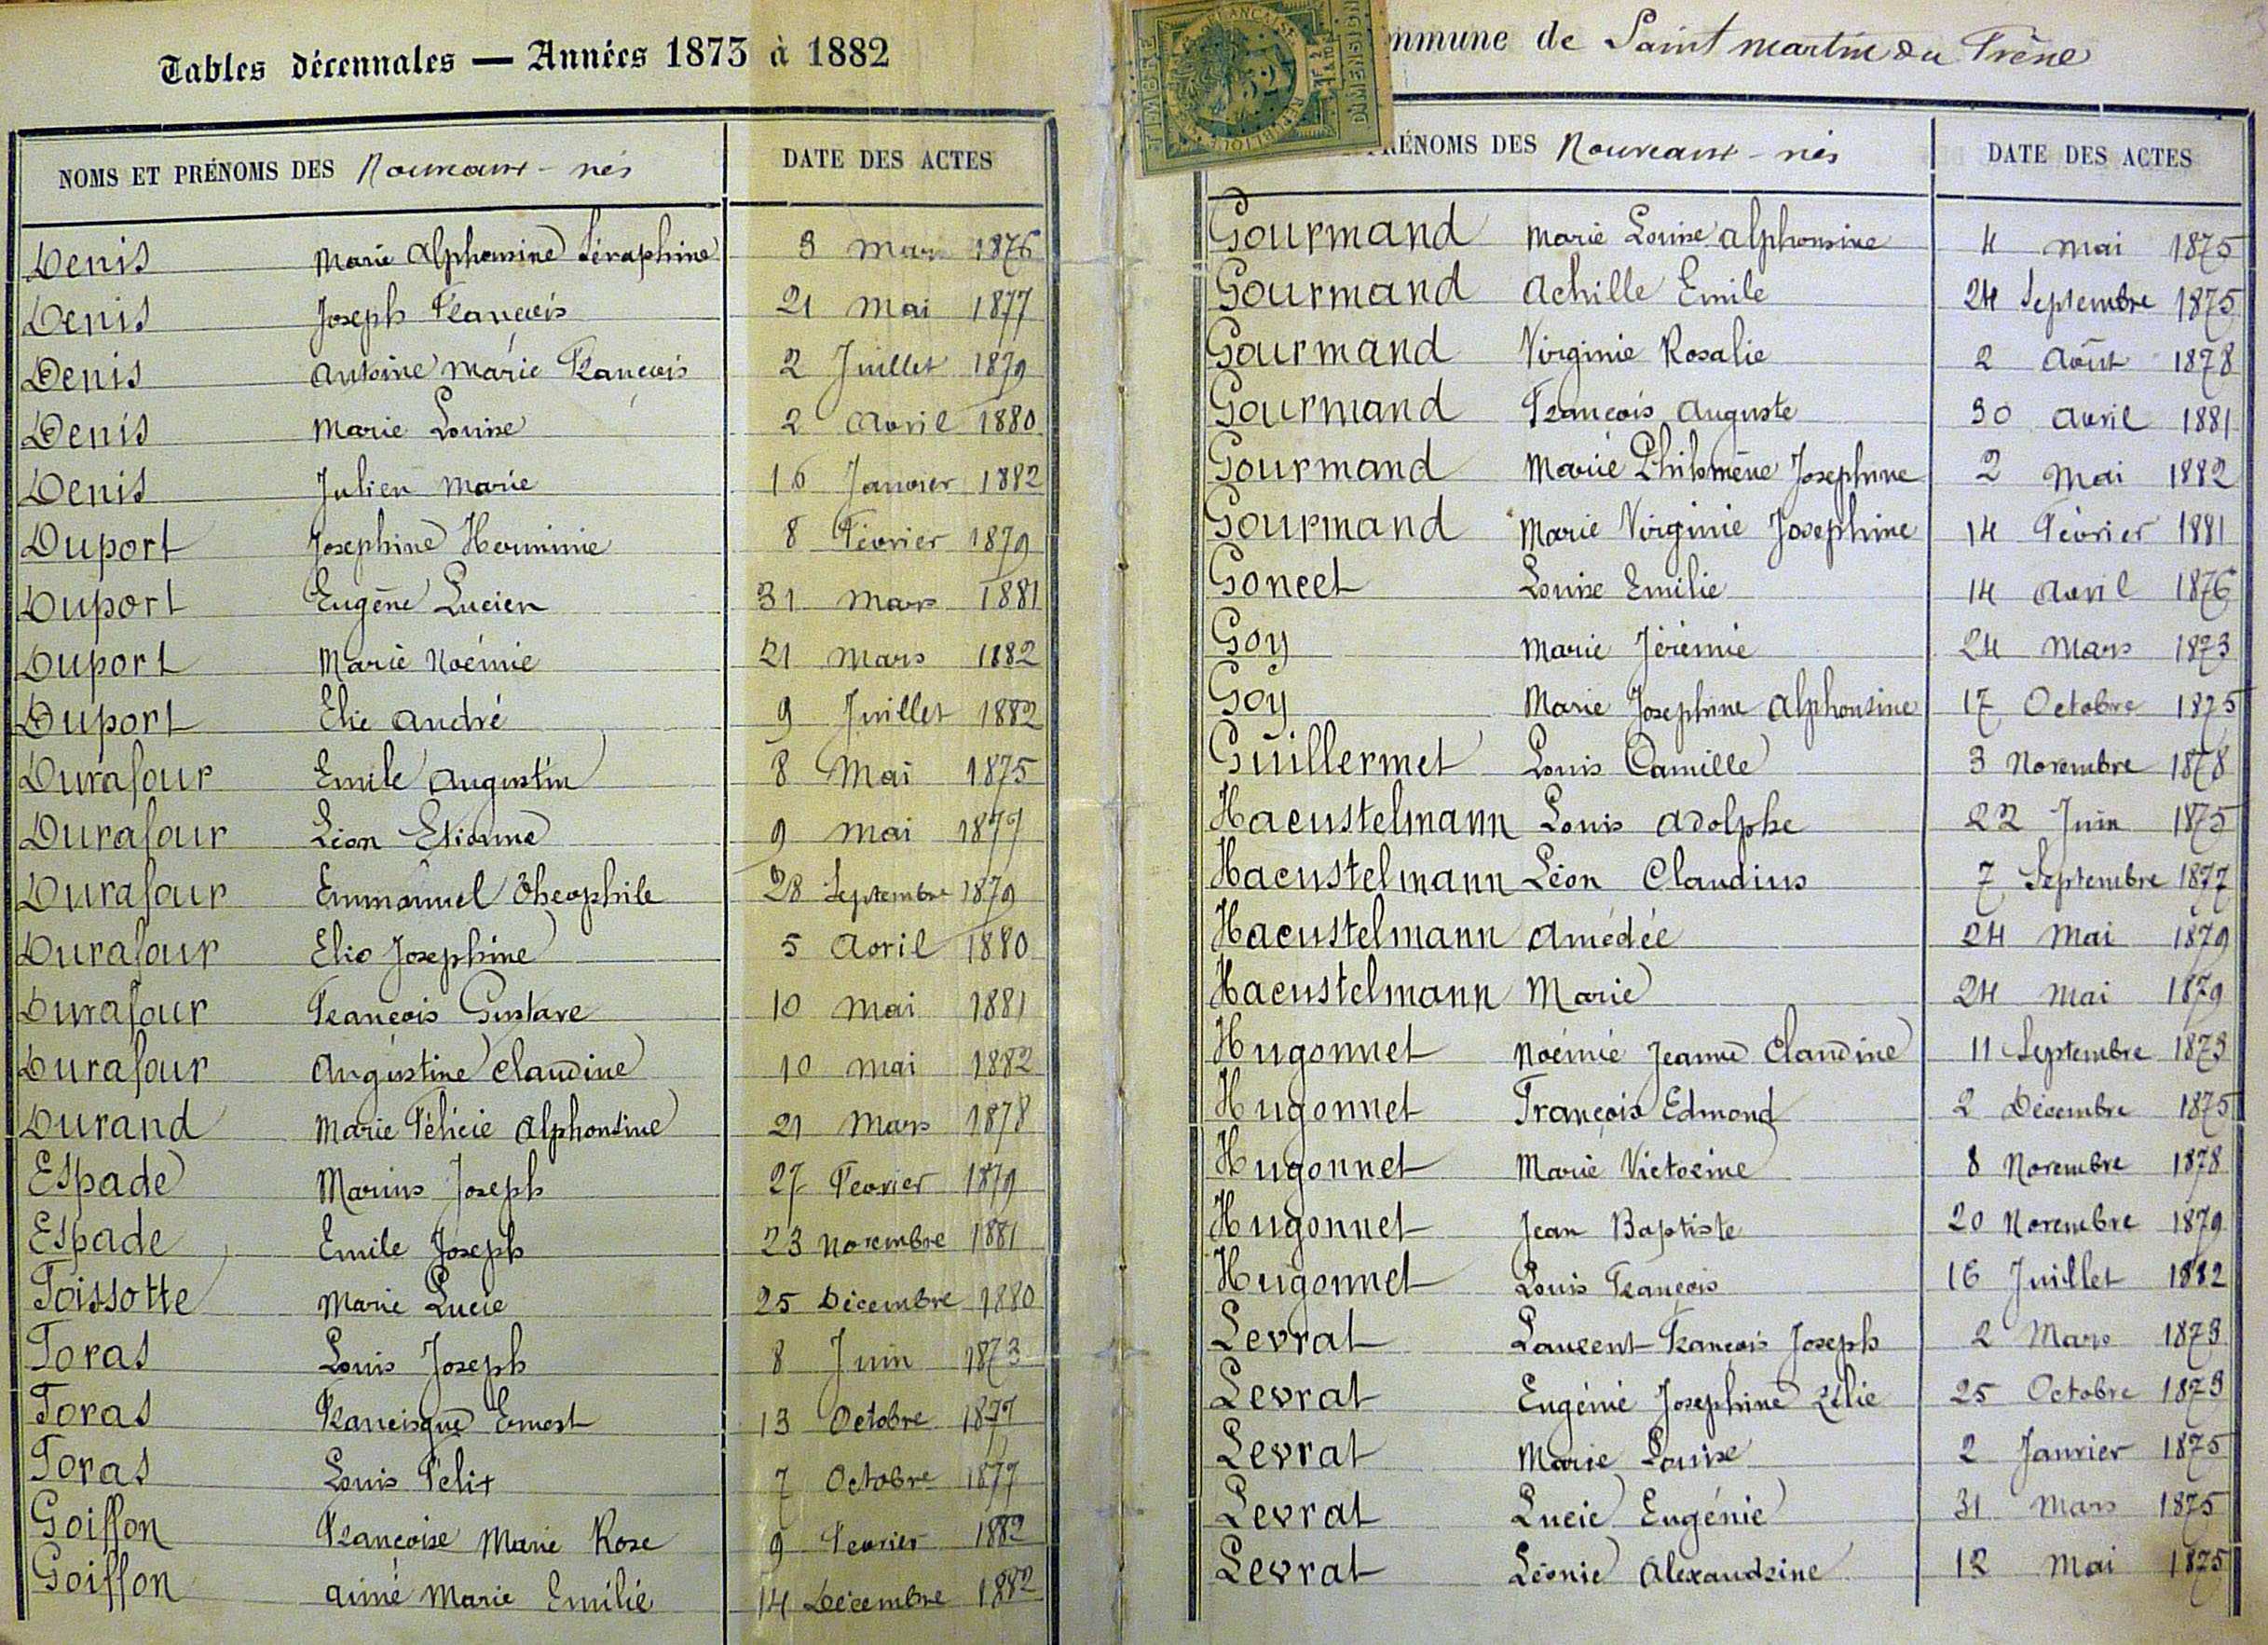 Tables décennales — Années 1873 à 1882
NOMS ET PRÉNOMS DES Nouveaux-nés DATE DES ACTES
Denis Marie Alphonsine Séraphine 3 Mars 1876
Denis Joseph François 21 Mai 1877
Denis Antoine Marie François 2 Juillet 1879
Denis Marie Louise 2 Avril 1880
Denis Julien Marie 16 Janvier 1882
Duport Josephine Herminie 8 Février 1879
Duport Eugène Lucien 31 Mars 1881
Duport Marie Noémie 21 Mars 1882
Duport Elie André 9 Juillet 1882
Durafour Emile Augustin 8 Mai 1875
Durafour Léon Etienne 9 Mai 1877
Durafour Emmanuel Théophile 28 Septembre 1879
Durafour Elie Josephine 5 Avril 1880
Durafour François Gustave 10 Mai 1881
Durafour Augustine Claudine 10 Mai 1882
Durand Marie Félicie Alphonsine 21 Mars 1878
Espade Marius Joseph 27 Fevrier 1879
Espade Emile Joseph 23 Novembre 1881
Foissotte Marie Lucie 25 Décembre 1880
Foras Louis Joseph 8 Juin 1873
Foras Francisque Ernest 13 Octobre 1877
Foras Louis Felix 7 Octobre 1877
Goiffon Françoise Marie Rose 9 Fevrier 1882
Goiffon Aimé Marie Emilie 14 Décembre 1882
TIMBRE
RÉPUBLIQUE FRANÇAISE
mmune de Saint Martin du Frêne
RÉNOMS DES Nouveaux-nés DATE DES ACTES
Gourmand Marie Louise Alphonsine 4 Mai 1875
Gourmand Achille Emile 24 Septembre 1875
Gourmand Virginie Rosalie 2 Août 1878
Gourmand François Auguste 30 Avril 1881
Gourmand Marie Philomène Josephine 2 Mai 1882
Gourmand Marie Virginie Josephine 14 Février 1881
Goncet Louise Emilie 14 Avril 1876
Goy Marie Jérémie 24 Mars 1873
Goy Marie Josephine Alphonsine 17 Octobre 1875
Guillermet Louis Camille 3 Novembre 1878
Haeustelmann Louis Adolphe 22 Juin 1875
Haeustelmann Léon Claudius 7 Septembre 1877
Haeustelmann Amédée 24 Mai 1879
Haeustelmann Marie 24 Mai 1879
Hugonnet Noémie Jeanne Claudine 11 Septembre 1873
Hugonnet François Edmond 2 Décembre 1875
Hugonnet Marie Victorine 8 Novembre 1878
Hugonnet Jean Baptiste 20 Novembre 1879
Hugonnet Louis François 16 Juillet 1882
Levrat Laurent François Joseph 2 Mars 1873
Levrat Eugénie Josephine Zélie 25 Octobre 1873
Levrat Marie Louise 2 Janvier 1875
Levrat Lucie Eugénie 31 Mars 1875
Levrat Léonie Alexandrine 12 Mai 1875